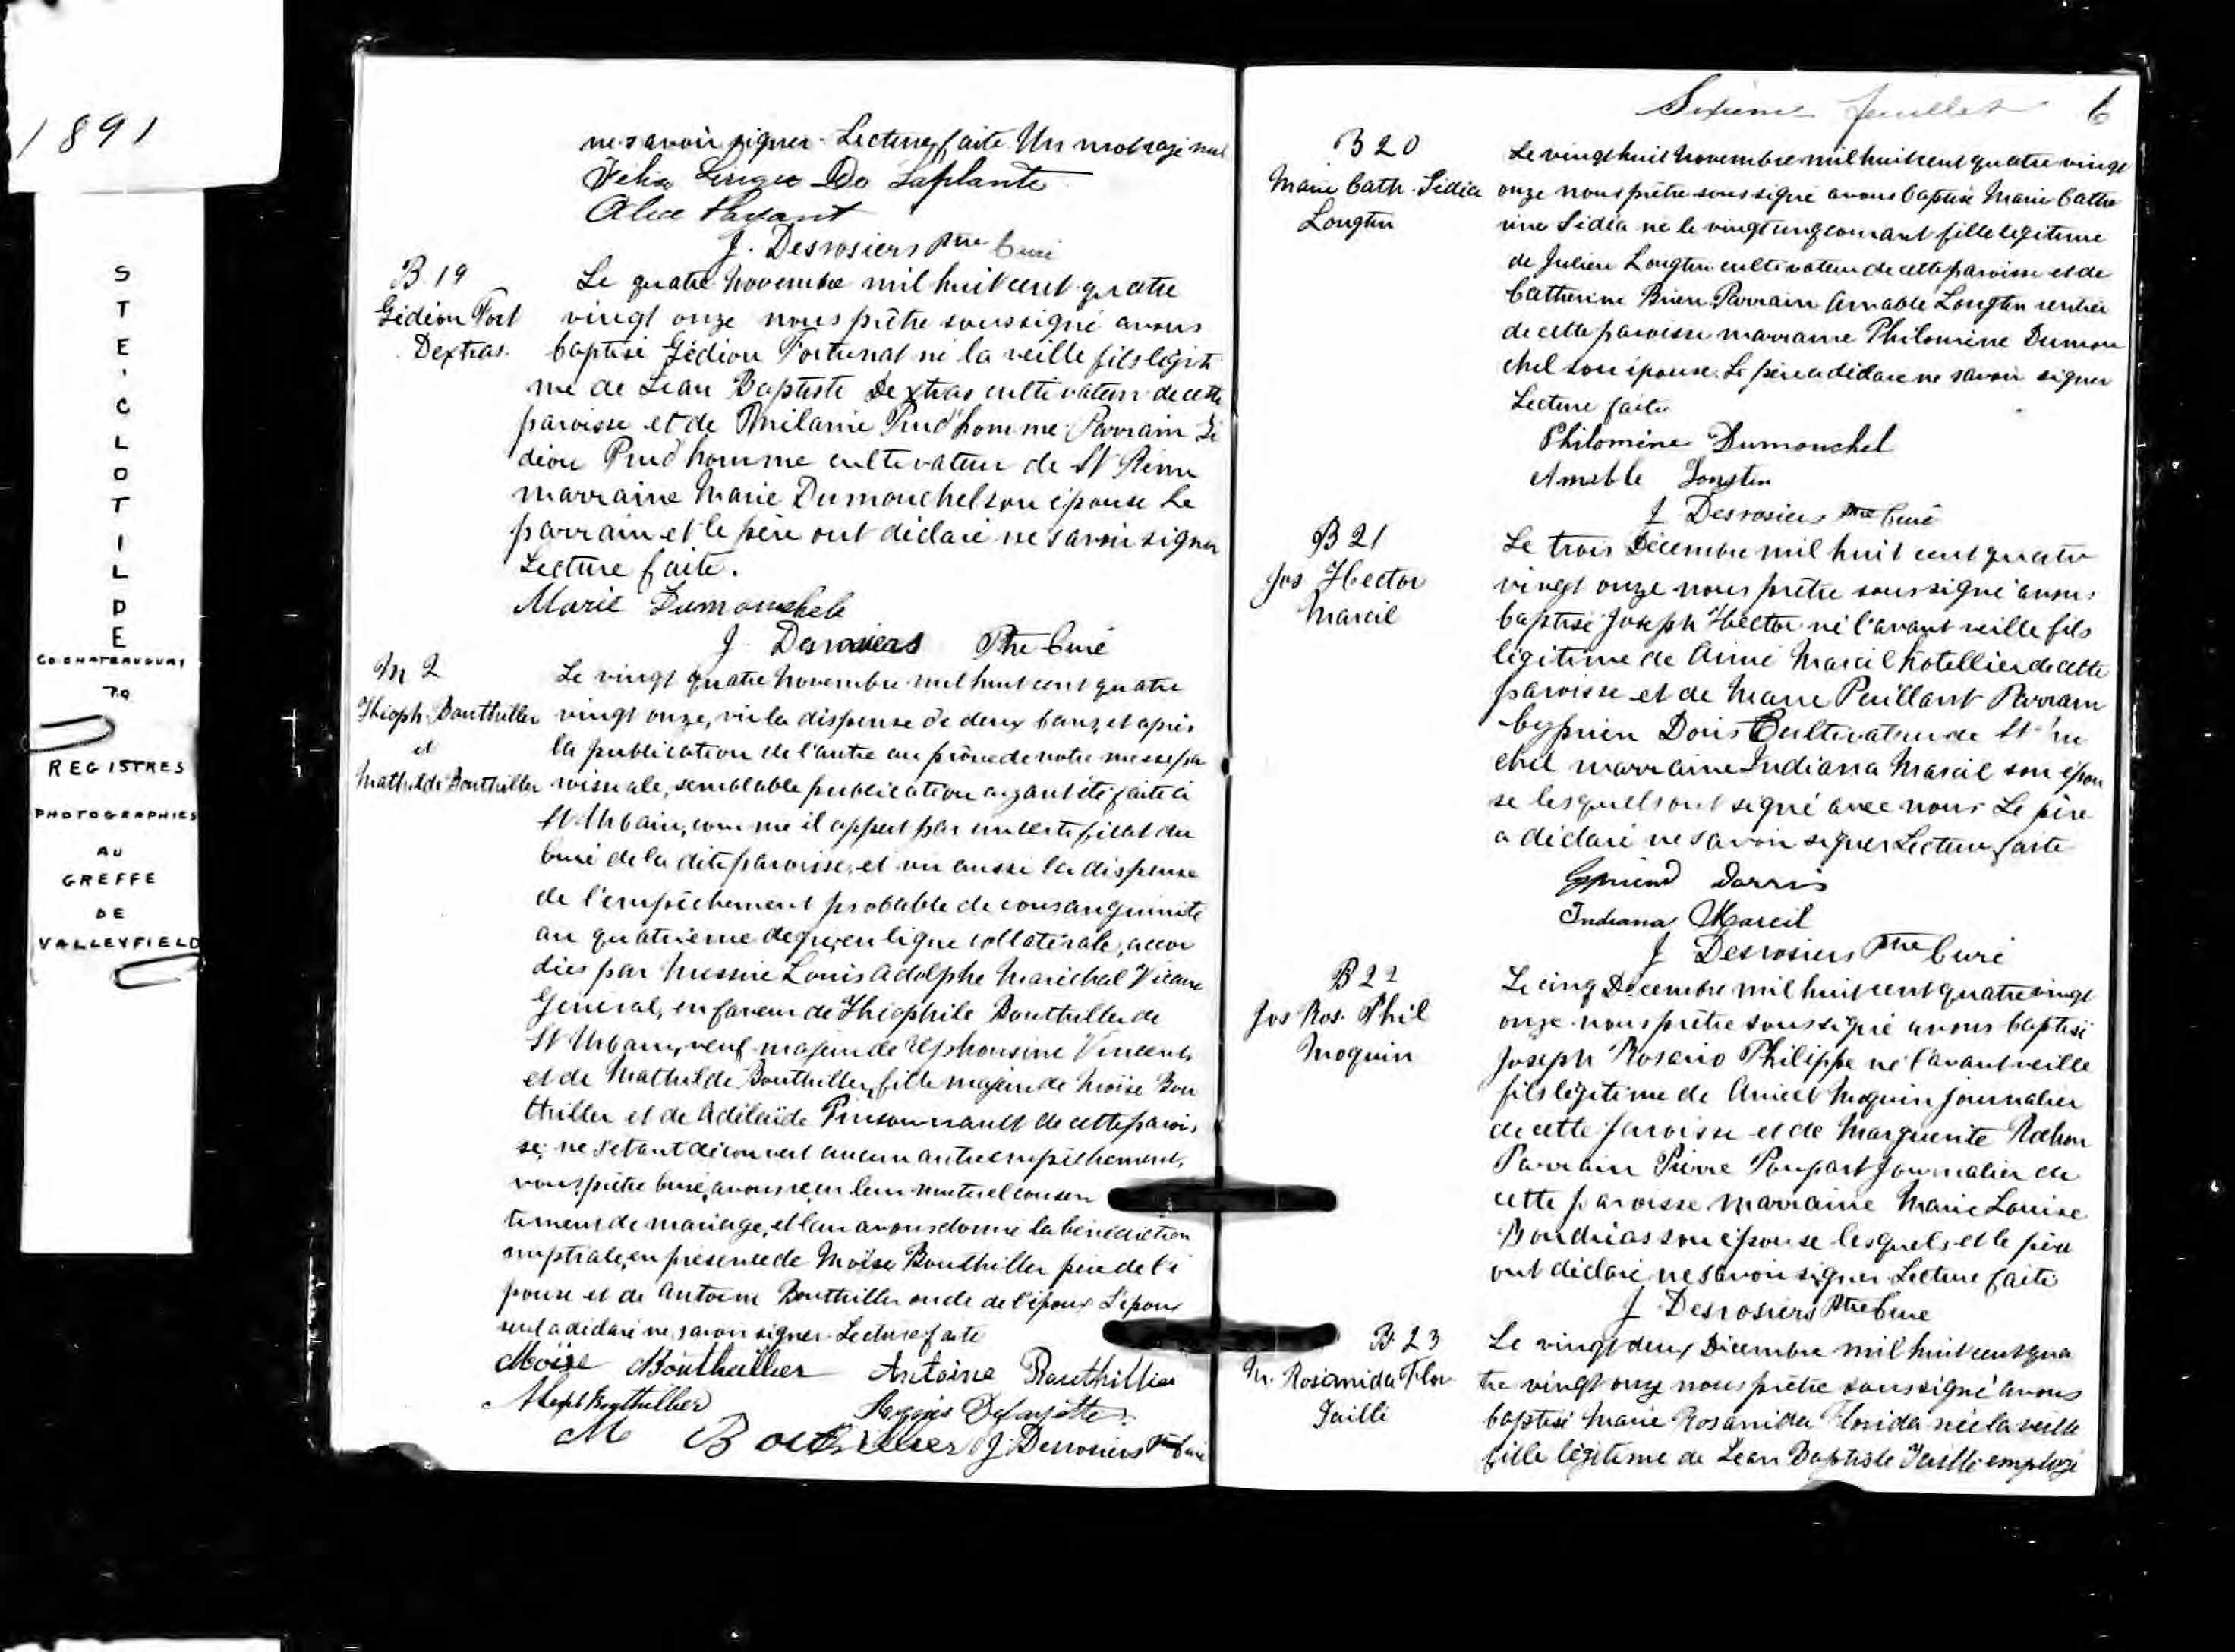 1891
STE. CLOTILDE
CO. CHATEAUGUAY
REGISTRES
PHOTOGRAPHIES
AU
GREFFE
DE
VALLEYFIELD
ne savoir signer - Lecture faite. Un mot rayé nul
Félix Do Laplante
Payant
J. Desrosiers Ptre Curé
B. 19
Gédéon Fort
Dextras.
Le quatre Novembre mil huit cent quatre
vingt onze nous prêtre soussigné avons
baptisé Gédéon Fortunat né la veille fils légiti
me de Jean Baptiste Dextras cultivateur de cette
paroisse et de Prud'homme Parrain Gé
déon Prud'homme cultivateur de St Rémi
marraine Marie Dumouchel son épouse Le
parrain et le père ont déclaré ne savoir signer
Lecture faite.
Marie Dumouchele
J. Ptre Curé
M 2
Théoph. Bouthiller
et
Mathilde Bouthiller
Le vingt quatre Novembre mil huit cent quatre
vingt onze, vu la dispense de deux bans, et après
la publication de l'autre au prône de notre messe pa
roissiale, semblable publication ayant été faite à
St Urbain, comme il appert par un certificat du
Curé de la dite paroisse, et vu aussi la dispense
de l'empêchement probable de consanguinité
au quatrième degré en ligne collatérale, accor
dées par Messire Louis Adolphe Maréchal Vicaire
Général, en faveur de Théophile Bouthiller de
St Urbain, veuf majeur de Alphonsine Vincent,
et de Mathilde Bouthiller, fille majeure de Moïse Bou
thiller et de Adélaïde Pinsonnault de cette parois
se; ne s'étant découvert aucun autre empêchement,
nous, prêtre Curé, avons reçu leur mutuel consen
tement de mariage, et leur avons donné la bénédiction
nuptiale, en présence de Moïse Bouthiller père de l'é
pouse et de Antoine Bouthiller oncle de l'époux L'époux
seul a déclaré ne savoir signer - Lecture faite
Moïse Bouthillier Antoine Bouthillier
M Bouthillier J. Desrosiers Ptre Curé
Sixième feuillet 6
B 20
Marie Cath. Lidia
Longtin
Le vingt huit Novembre mil huit cent quatre vingt
onze nous prêtre soussigné avons baptisé Marie Cathe
rine Lidia né le vingt cinq courant fille légitime
de Julien Longtin cultivateur de cette paroisse et de
Catherine Brien. Parrain Amable Longtin rentier
de cette paroisse marraine Philomène Dumou
chel son épouse. Le père a déclaré ne savoir signer
Lecture faite
Philomène Dumouchel
Amable Longtin
J Desrosiers Ptre Curé
B 21
Jos Hector
Marcil
Le trois Décembre mil huit cent quatre
vingt onze nous prêtre soussigné avons
baptisé Joseph Hector né l'avant veille fils
légitime de Aimé Marcil hotellier de cette
paroisse et de Marie Parrain
Cyprien Doris Cultivateur de St Mi
chel marraine Indiana Marcil son épou
se lesquels ont signé avec nous Le père
a déclaré ne savoir signer Lecture faite
Dorris
Indiana Marcil
J Desrosiers Ptre Curé
B 22
Jos Ros. Phil
Moquin
Le cinq Décembre mil huit cent quatre vingt
onze nous prêtre soussigné avons baptisé
Joseph Rosario Philippe né l'avant veille
fils légitime de Moquin journalier
de cette paroisse et de Marguerite Rochon
Parrain Pierre Poupart journalier de
cette paroisse marraine Marie Louise
Boudrias son épouse lesquels et le père
ont déclaré ne savoir signer Lecture faite
J. Desrosiers Ptre Curé
B. 23
M. Rosanida Flor
Le vingt deux Décembre mil huit cent qua
tre vingt onze nous prêtre soussigné avons
baptisé Marie Rosanida Florida née la veille
fille légitime de Jean Baptiste employé